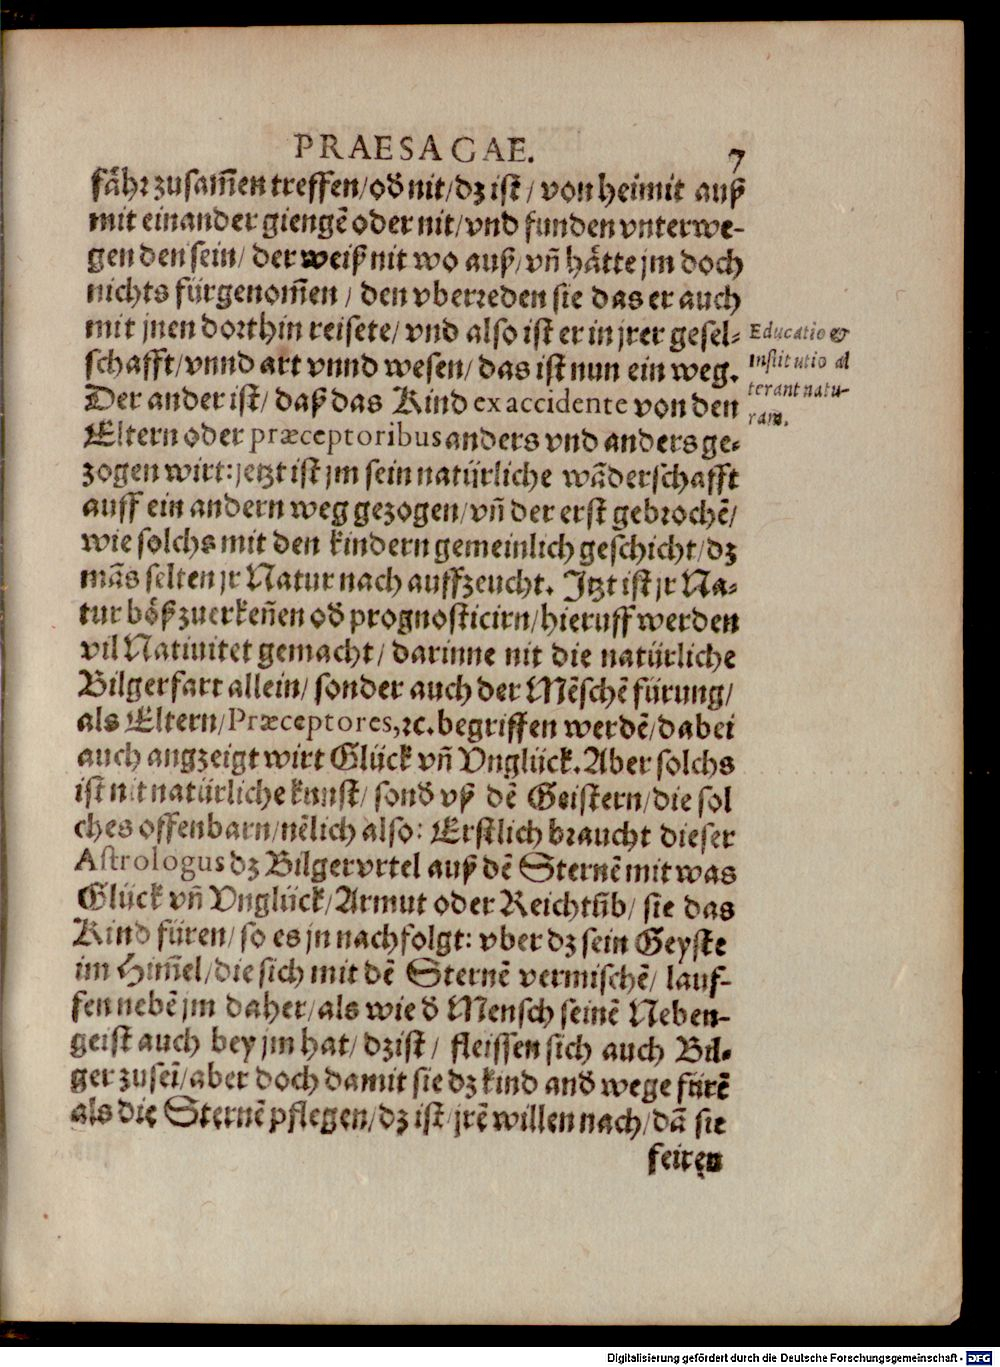 PRAESAGAE. 7
fåhr zusam̃en treffen/od nit/dz ist/ von heimit auß
mit einander giengẽ oder nit/vnd funden vnterwe-
gen den sein/ der weiß nit wo auß/vñ håtte jm doch
nichts fürgenom̃en / den vberreden sie das er auch
mit jnen dorthin reisete/ vnd also ist er in jrer gesel-
schafft/vnnd art vnnd wesen/ das ist nun ein weg.
Der ander ist/ daß das Kind ex accidente von den
Eltern oder præceptoribus anders vnd anders ge-
zogen wirt: jetzt ist jm sein natürliche wãderschafft
auff ein andern weg gezogen/vñ der erst gebrochẽ/
wie solchs mit den kindern gemeinlich geschicht/dz
mãs selten jr Natur nach auffzeucht. Jtzt ist jr Na-
tur bôß zuerkeñen od prognosticirn/hieruff werden
vil Natiuitet gemacht/ darinne nit die natürliche
Bilgerfart allein/ sonder auch der Mẽschẽ fürung/
als Eltern/Præceptores,ꝛc. begriffen werdẽ/dabei
auch angzeigt wirt Glück vñ Vnglück. Aber solchs
ist nit natürliche kunst/ sond vß dẽ Geistern/die sol
ches offenbarn/nẽlich also: Erstlich braucht dieser
Astrologus dz Bilger vrtel auß dẽ Sternẽ mit was
Glück vñ Vnglück/Armut oder Reichtũb/ sie das
Kind füren/ so es jn nachfolgt: vber dz sein Geyste
im Him̃el/die sich mit dẽ Sternẽ vermischẽ/ lauf-
fen nebẽ jm daher/als wie d Mensch seinẽ Neben-
geist auch bey jm hat/ dz ist/ fleissen sich auch Bil-
ger zu seĩ/aber doch damit sie dz kind and wege fürẽ
als die Sternẽ pflegen/dz ist/jrẽ willen nach/dã sie
feiren
Educatio &
institutio al
terant natu-
ram.
Digitalisierung gefördert durch die Deutsche Forschungsgemeinschaft - DFG